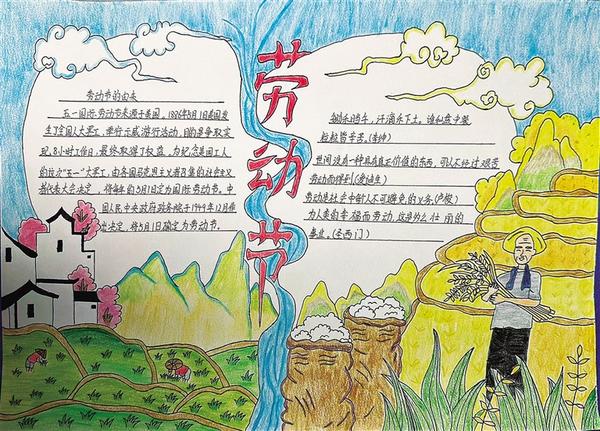 劳动节
劳动节的由来
五一国际劳动节来源于美国。1886年5月1日美国发
生了全国人大罢工,举行示威游行活动,目的是争取实
现8小时工作日,最终取得了权益。为纪念美国工人
的这次"五一"大罢工,由各国马克思主义者召集的社会主义
者代表大会决定,将每年的5月1定为国际劳动节。中
国人民中央政府政务院于1949年12月作
出决定,将5月1日确定为劳动节。
锄禾日当午,汗滴禾下土。谁知盘中餐
粒粒皆辛苦。(李绅)
世间没有一种具有真正价值的东西,可以不经过艰苦
劳动而得到(爱迪生)
劳动是社会中每个人不可避免的义务(卢梭)
为人类的幸福而劳动,这是多么 的
事业。(圣西门)